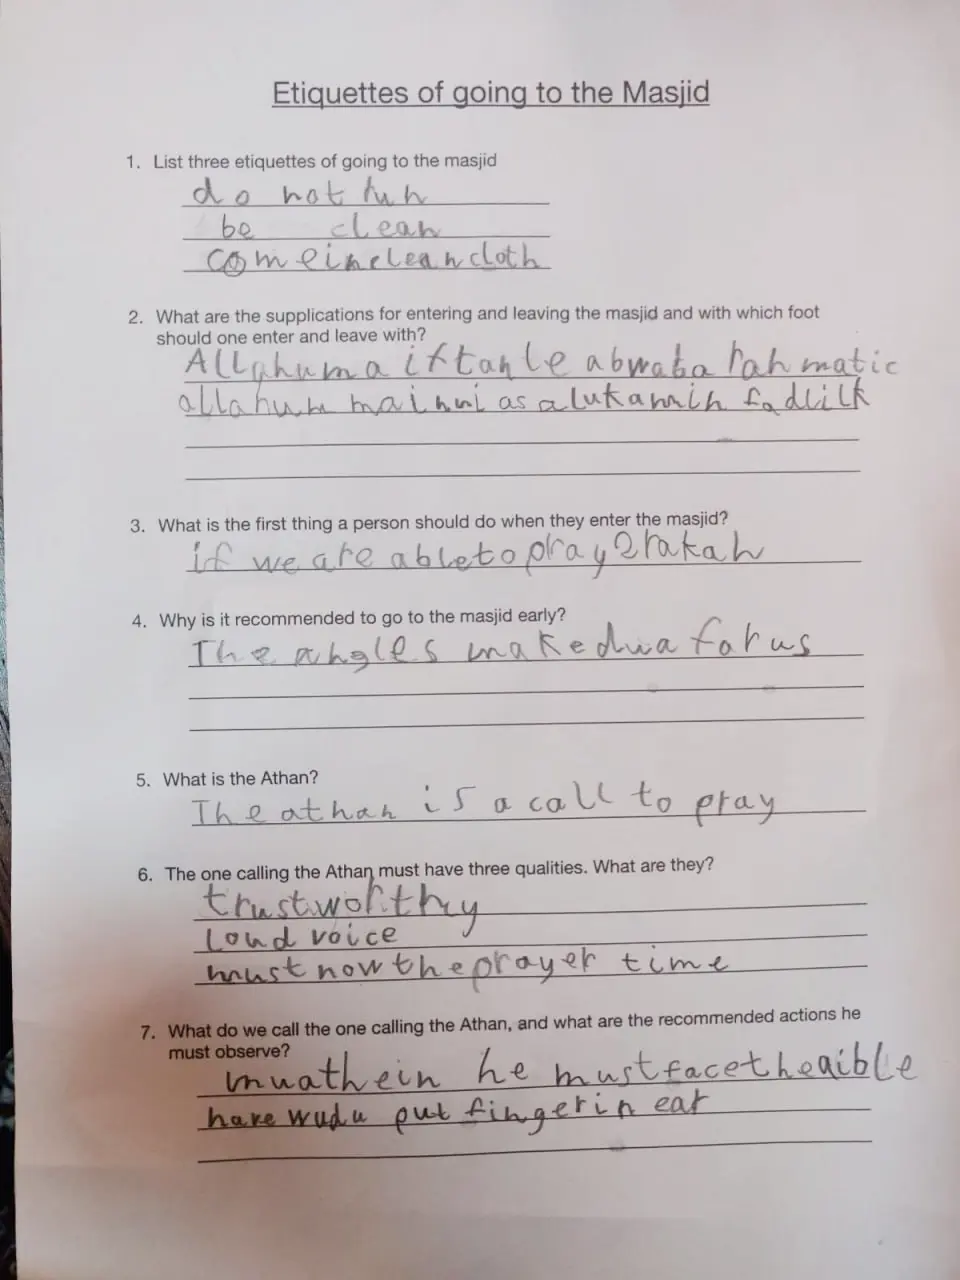 Etiquettes of going to the Masjid
1. List three etiquettes of going to the masjid
do not run
be clean
come in clean cloth
2. What are the supplications for entering and leaving the masjid and with which foot
should one enter and leave with?
Allahuma iftah le abwaba rahmatic
allahum mainni as alukamin fadlik
3. What is the first thing a person should do when they enter the masjid?
if we are able to pray 2 rakah
4. Why is it recommended to go to the masjid early?
The angles make dua for us
5. What is the Athan?
The athan is a call to pray
6. The one calling the Athan must have three qualities. What are they?
trustworthy
loud voice
must now the prayer time
7. What do we call the one calling the Athan, and what are the recommended actions he
must observe?
muathein he must face the qible
have wudu put finger in ear